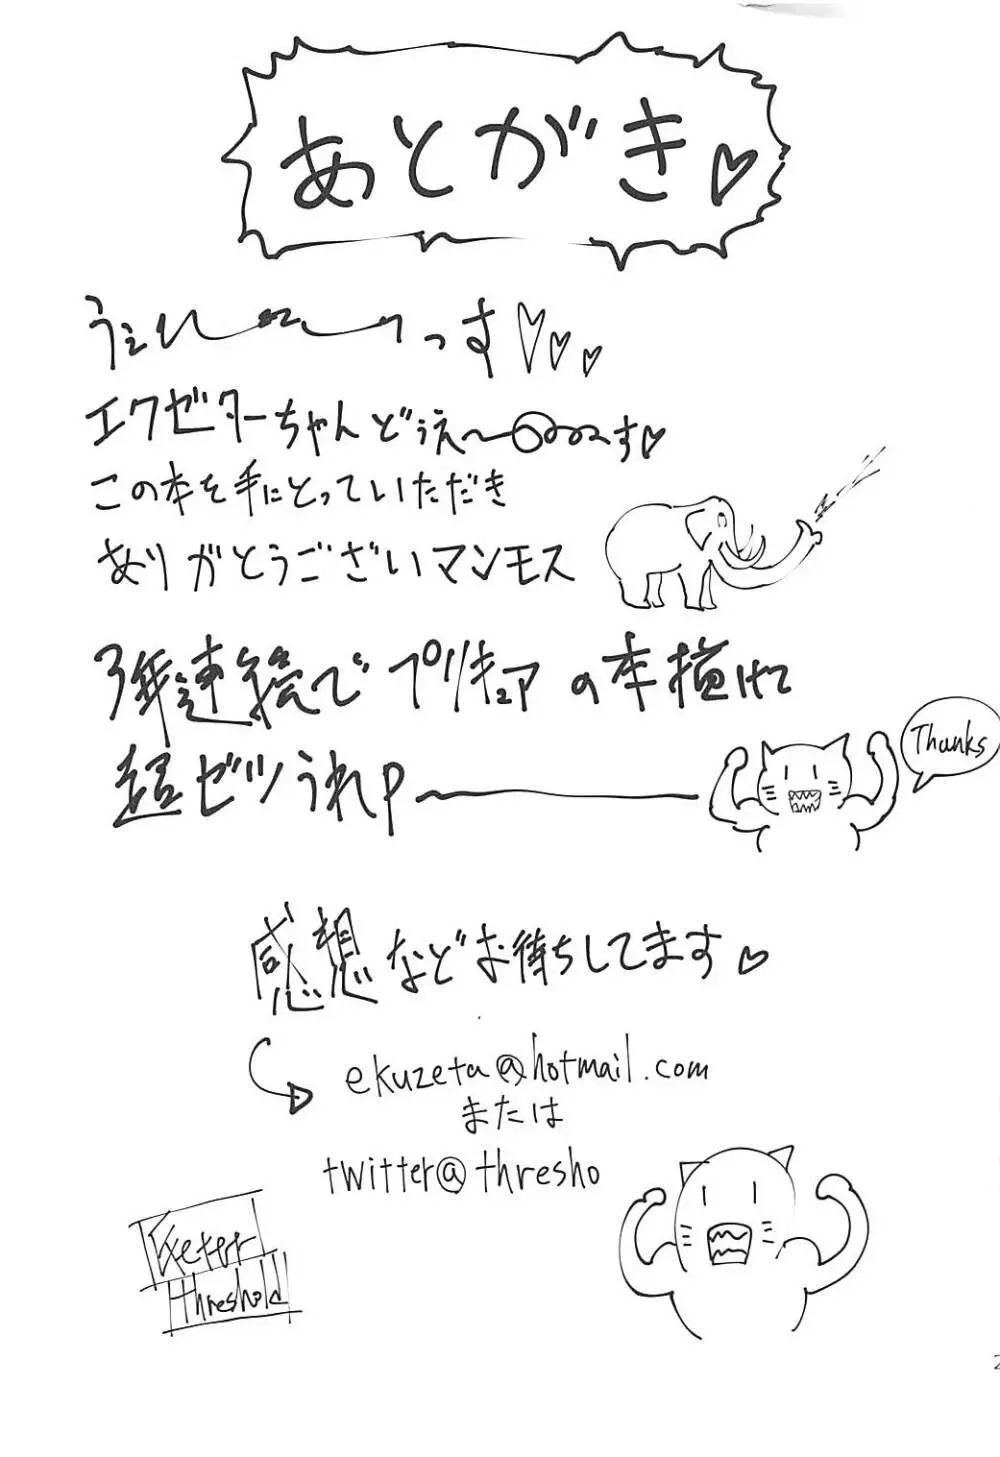 あとがき♡
うぇい〜〜〜っす♡♡♡
エクゼターちゃんどぅぇ〜〜〜す♡
この本を手にとっていただき
ありがとうございマンモス
3年連続でプリキュアの本描けて
超ゼツうれP〜
Thanks
感想などお待ちしてます♡
ekuzeta@hotmail.com
または
twitter@thresho
Exeter
threshold
2